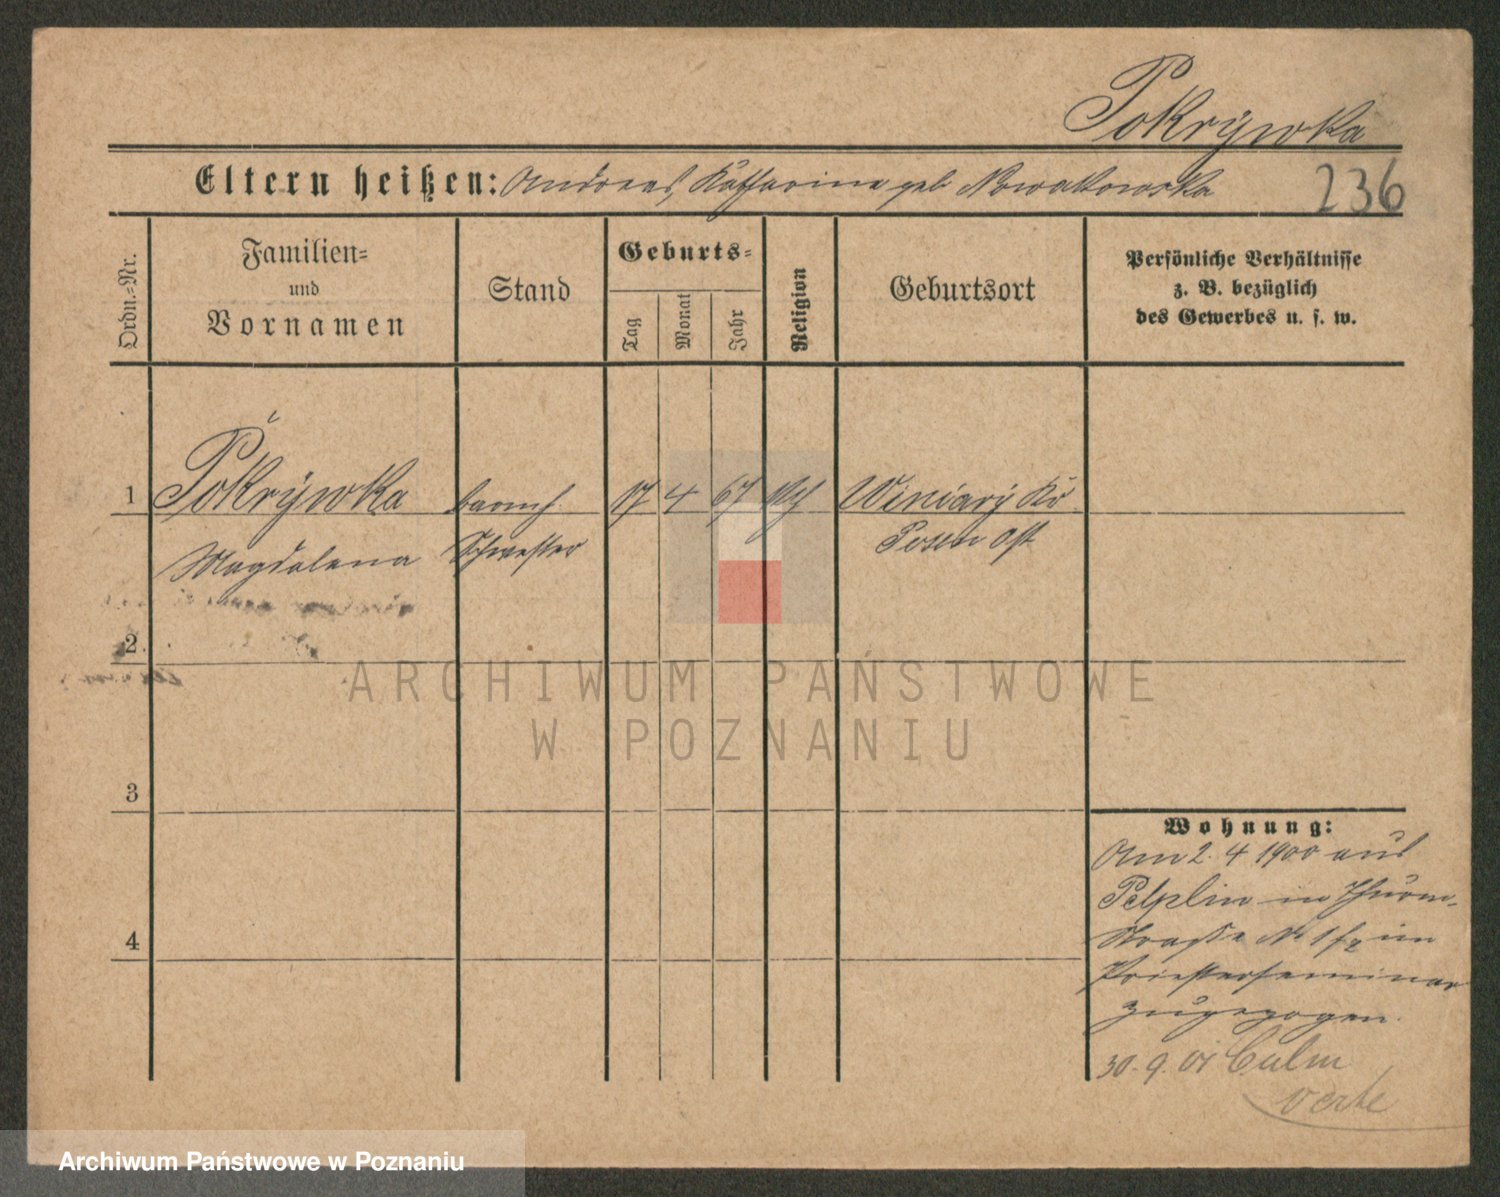 Pokrÿwka
Eltern heißen: Andreas, Katharina geb Nowakowska
236
Ordn.-Nr.
Familien-
und
Vornamen
Stand
Geburts-
Tag
Monat
Jahr
Religion
Geburtsort
Persönliche Verhältnisse
z. B. bezüglich
des Gewerbes u. s. w.
1 Pokrÿwka barmh. 17 4 67 kth Winiarÿ Kr.
Magdalena Schwester Posen Ost
2
3
4
Wohnung:
Am 2. 4 1900 aus
Pelplin in Thurm-
straße No 1/2 im
Priesterseminar
zugezogen.
30. 9. 01 Culm
verte
ARCHIWUM PAŃSTWOWE
W POZNANIU
Archiwum Państwowe w Poznaniu